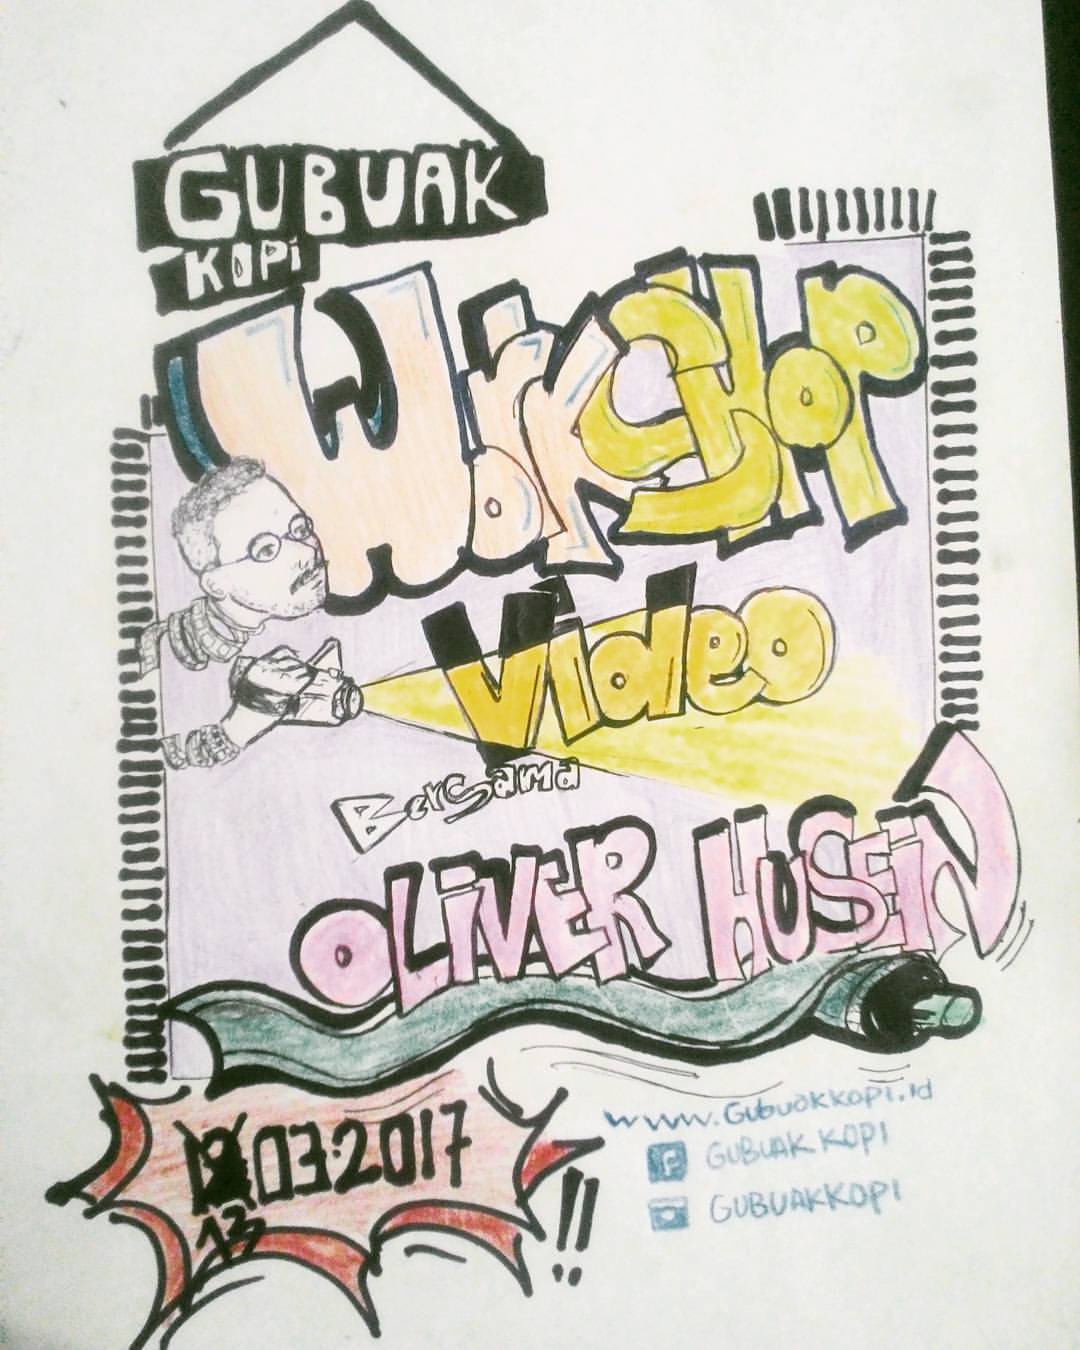 GUBUAK
KOPi
WORKSHOP
Video
Bersama
OLiVER HUSEiN
03.2017
13
!!
www.Gubuakkopi.id
GUBUAK KOPI
GUBUAKKOPI